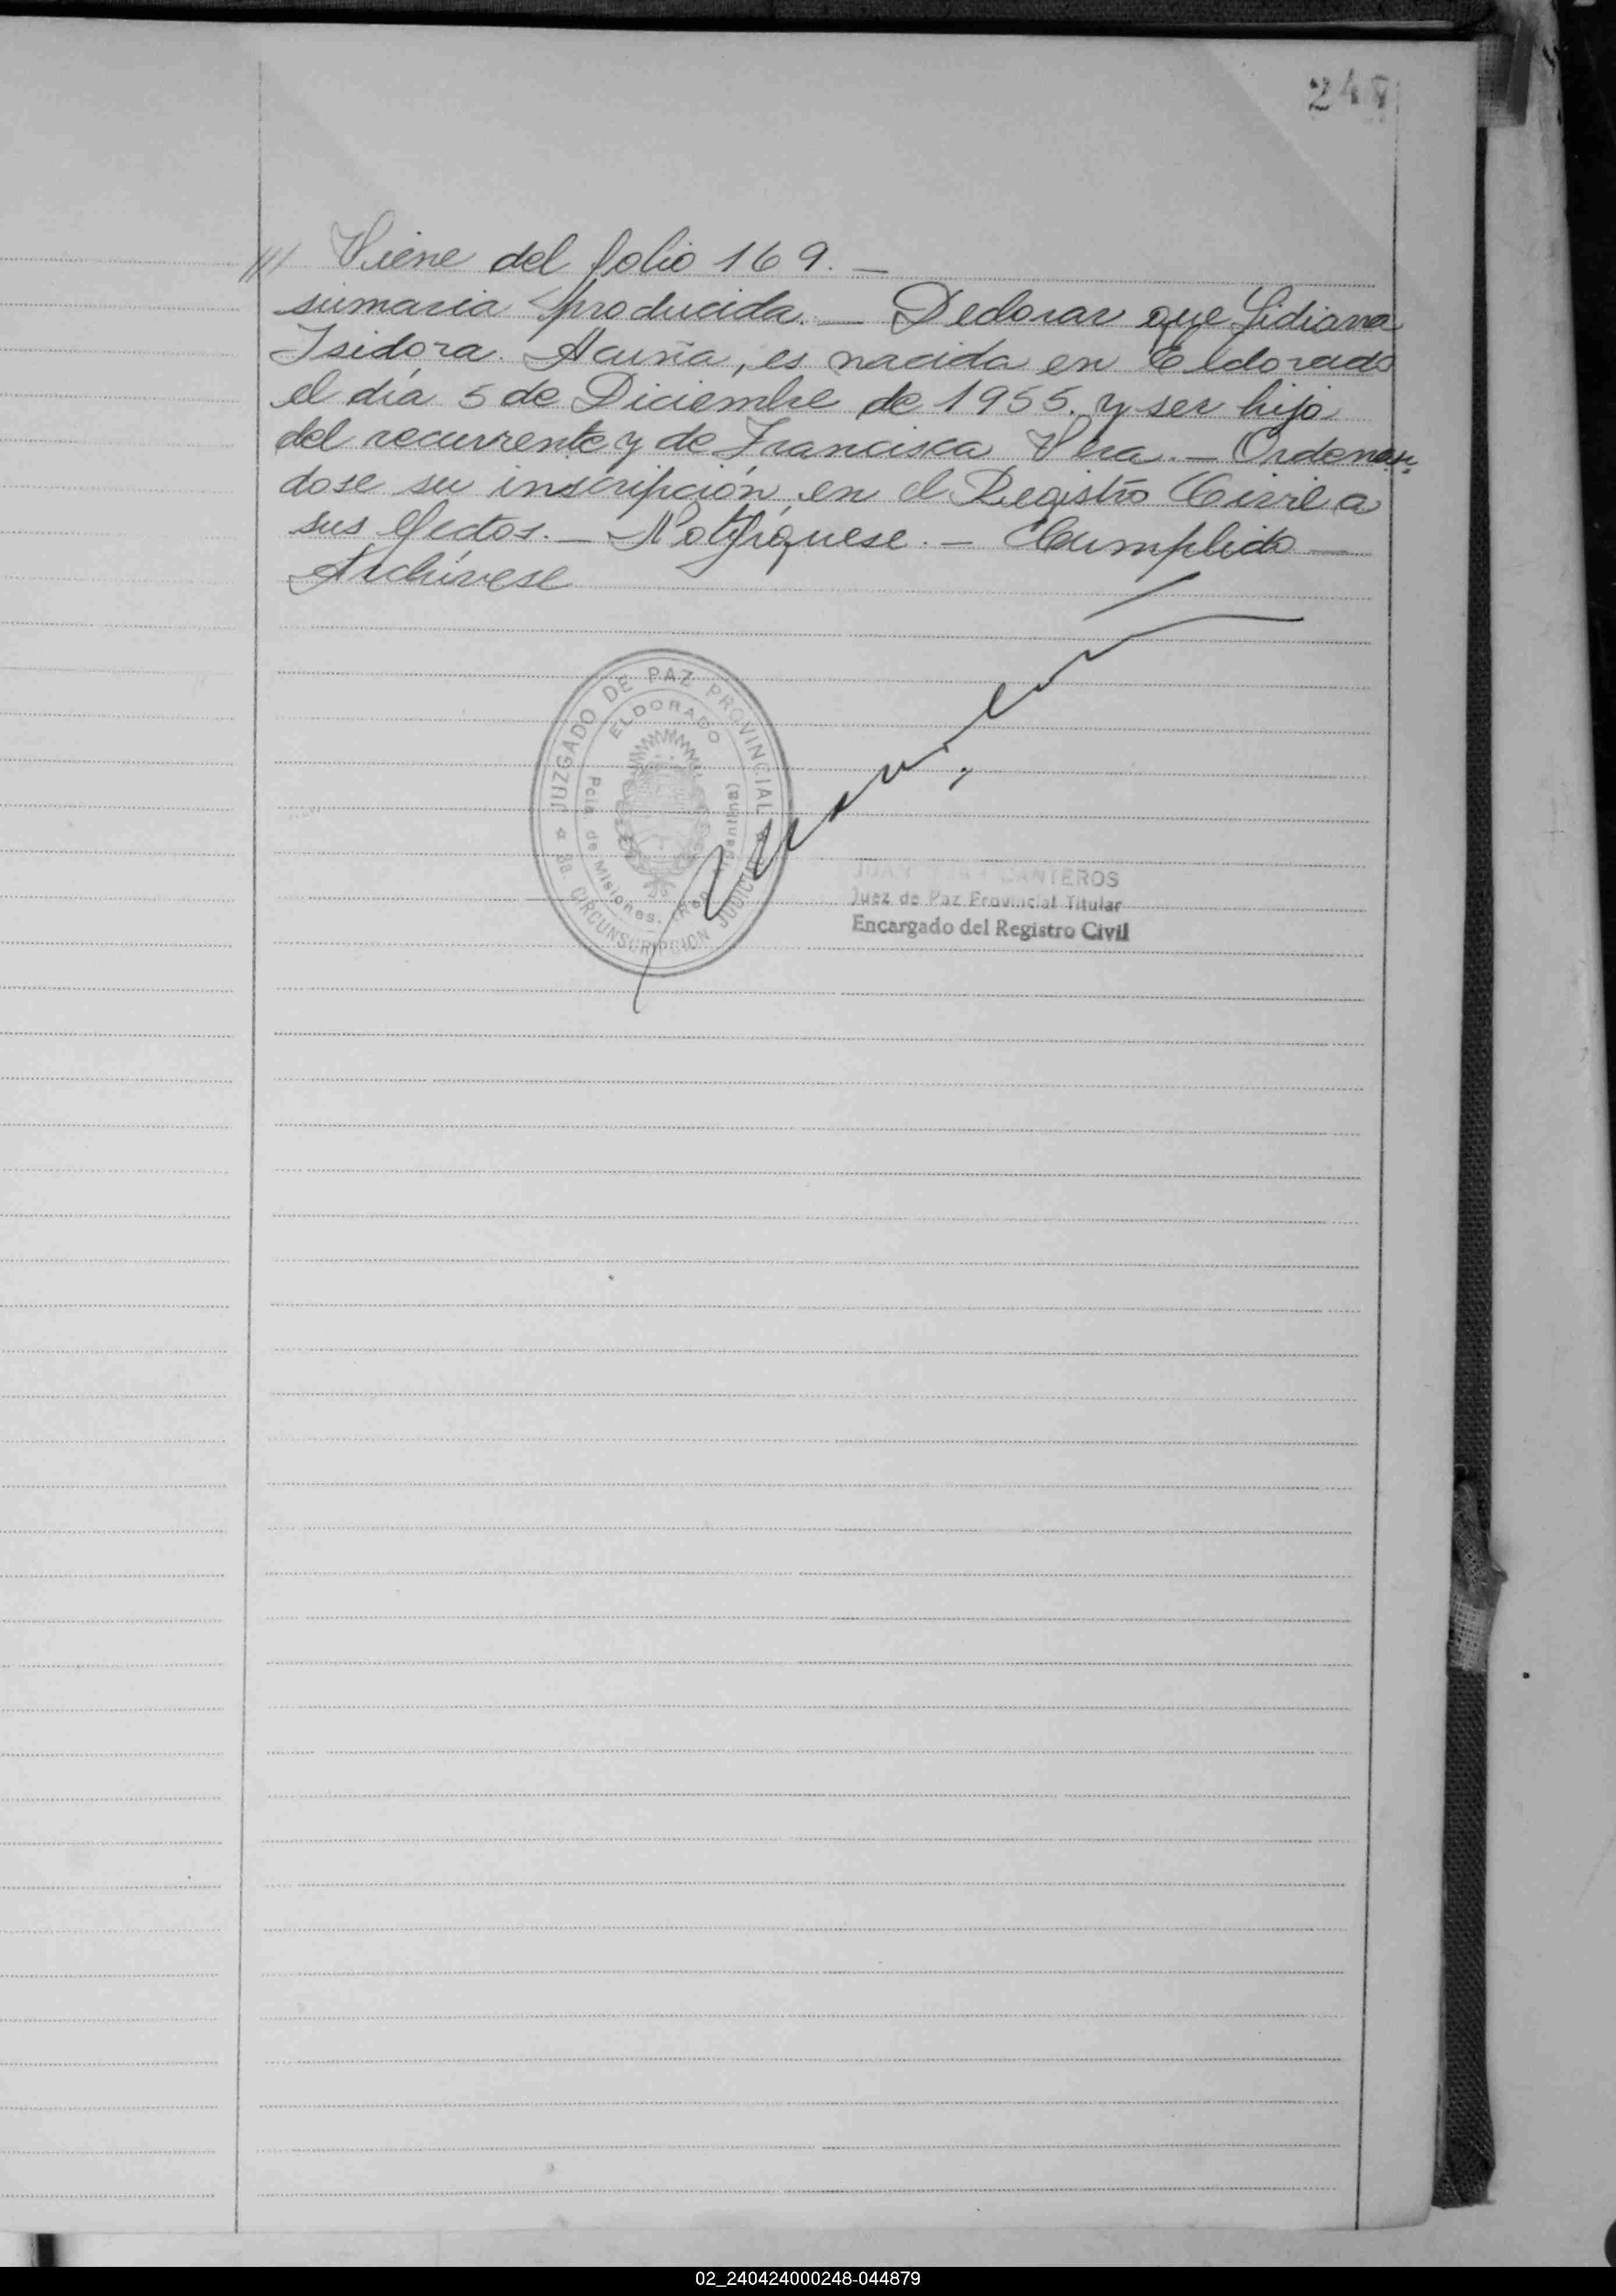 248
/// Viene del folio 169. —
sumaria producida. — Declarar que Lidiana
Isidora Acuña, es nacida en Eldorado
el día 5 de Diciembre de 1955. y ser hija
del recurrente y de Francisca Vera. — Ordenan-
dose su inscripción, en el Registro Civil a
sus efectos. — Notifíquese. — Cumplido —
Archívese
JUZGADO DE PAZ PROVINCIAL
ELDORADO
Pcia. de Misiones. (Rep. Argentina)
CIRCUNSCRIPCION JUDICIAL
JUAN CANTEROS
Juez de Paz Provincial Titular
Encargado del Registro Civil
02_240424000248-044879